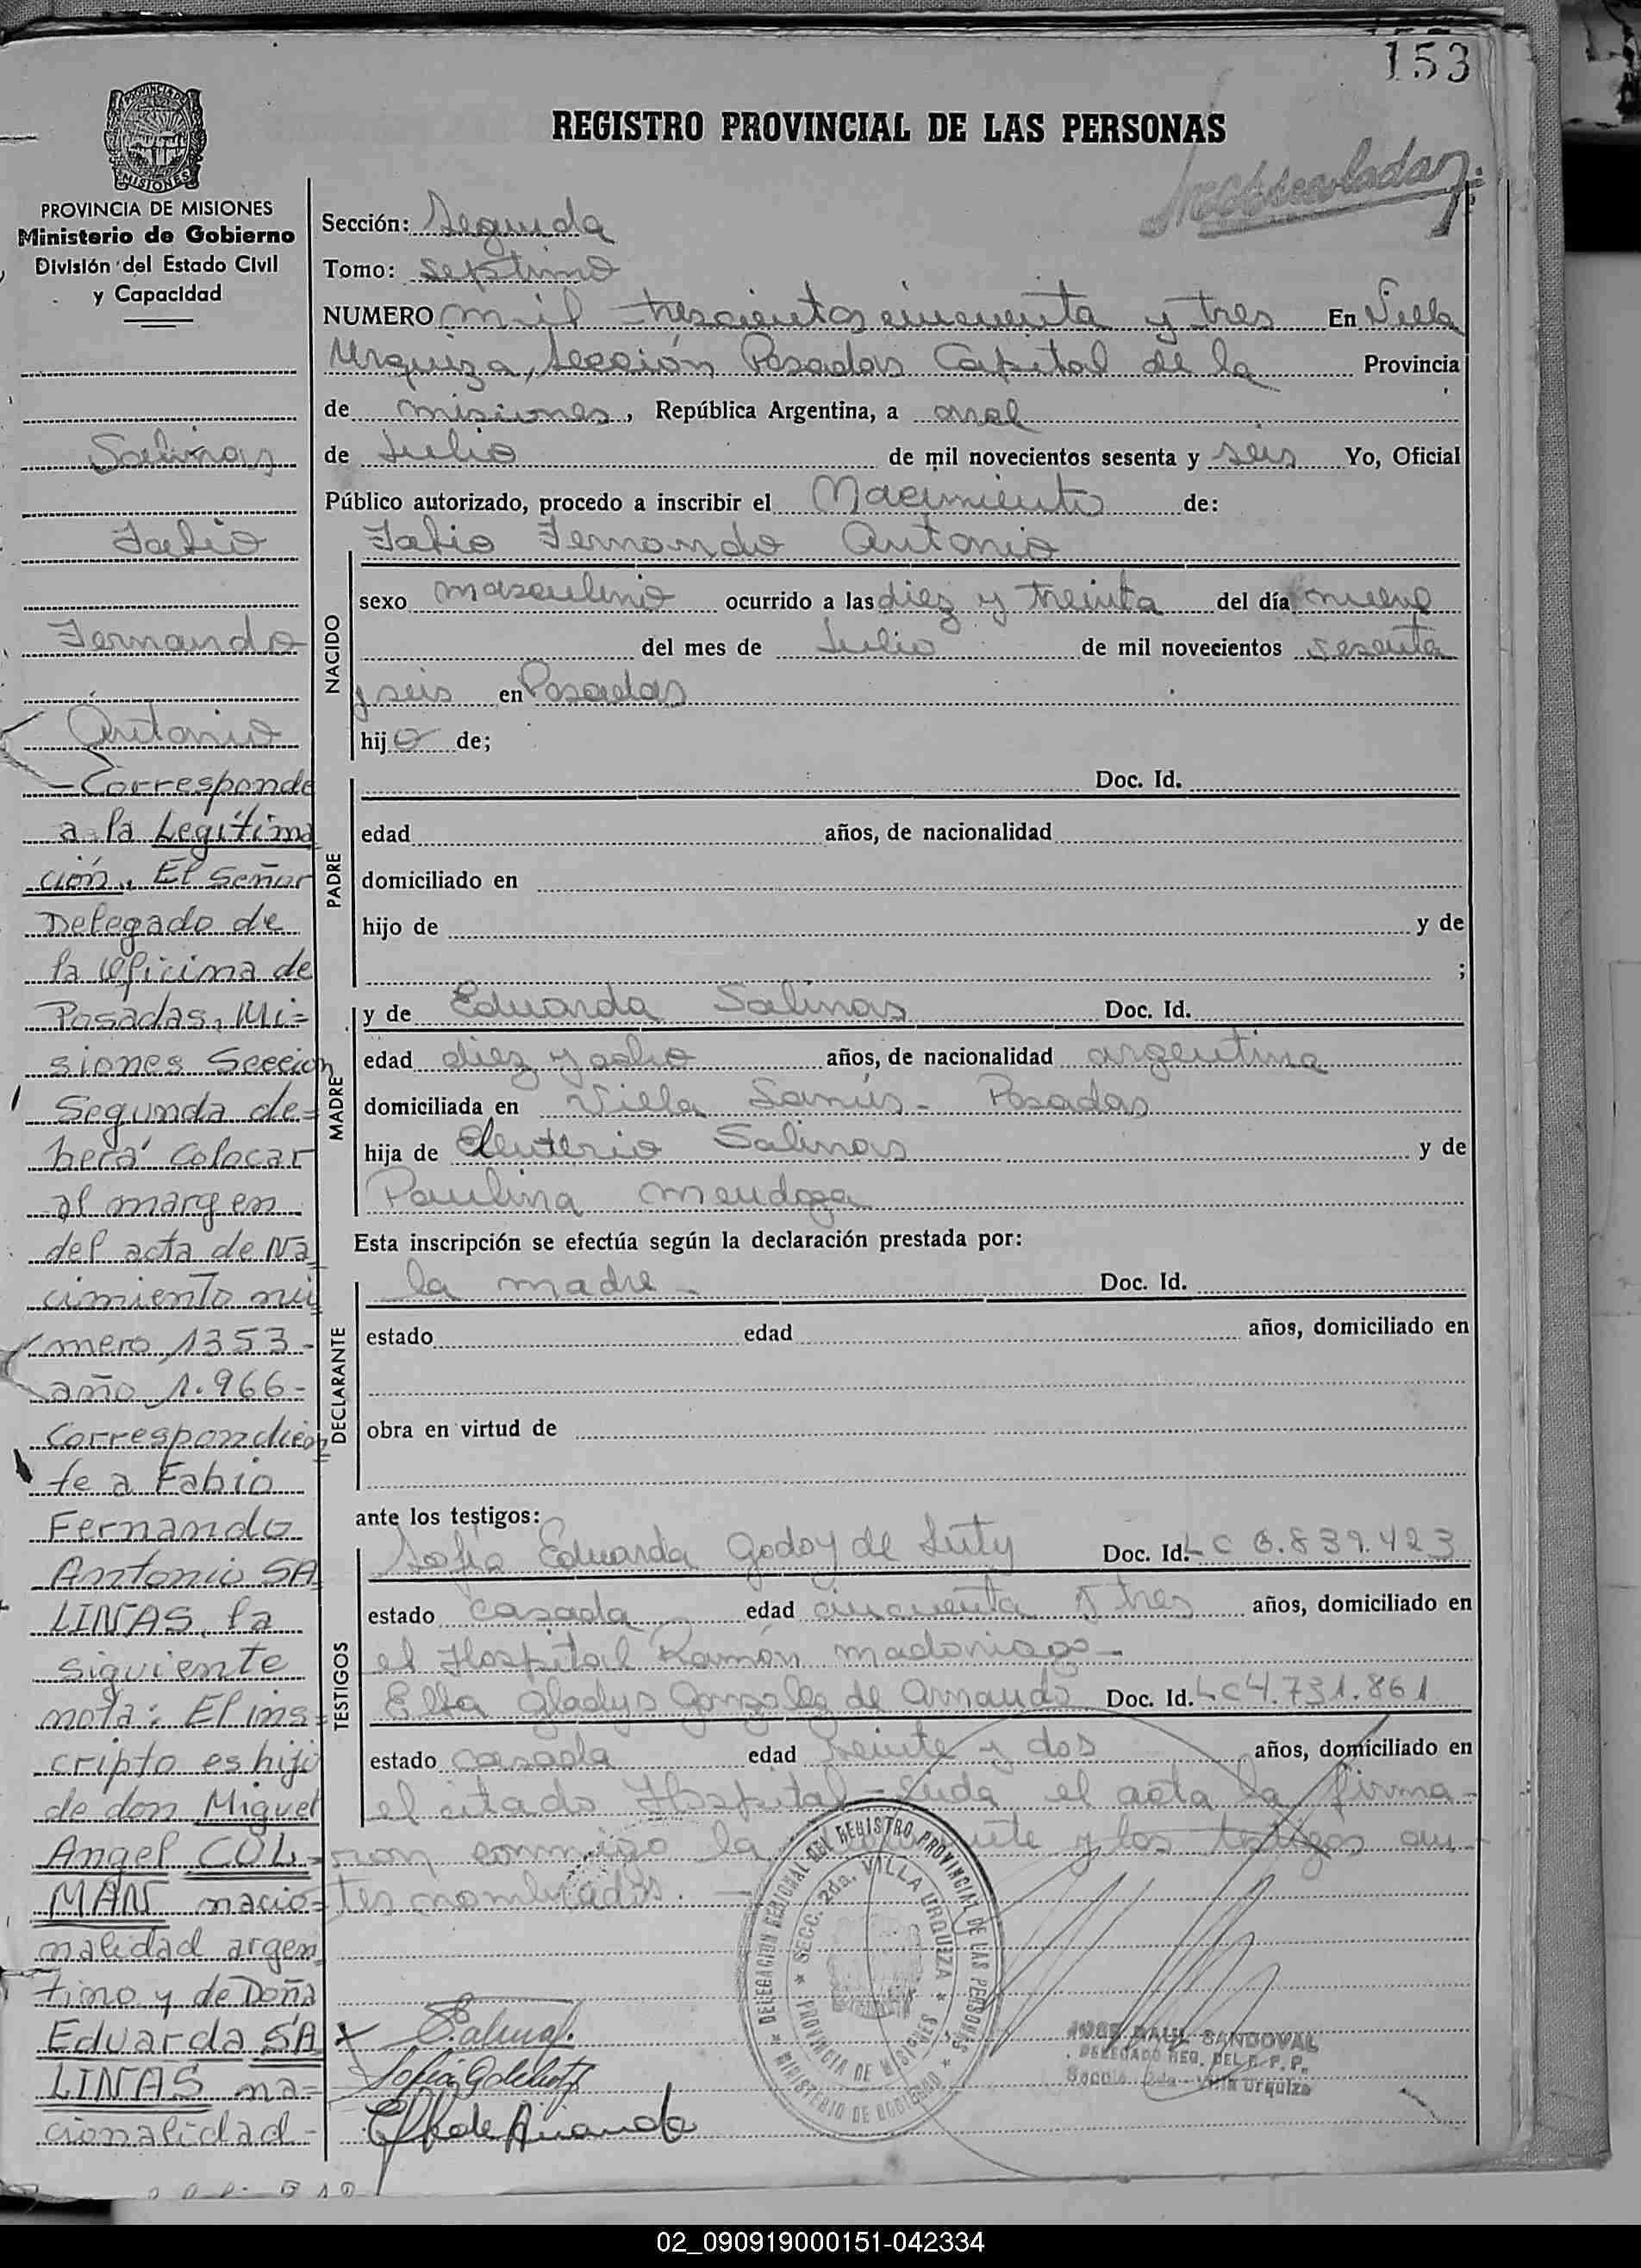 153
REGISTRO PROVINCIAL DE LAS PERSONAS
MISIONES
PROVINCIA DE MISIONES
Ministerio de Gobierno
División del Estado Civil
y Capacidad
Salinas
Fabio
Fernando
Antonio
- Corresponde
a la Legitima
ción. El Señor
Delegado de
la Oficina de
Posadas, Mi=
siones Sección
Segunda de=
berá colocar
al margen
del acta de Na
cimiento nú
mero 1353-
año 1.966-
Correspondien
te a Fabio
Fernando
Antonio SA
LINAS, la
siguiente
nota: El ins
cripto es hijo
de don Miguel
Angel COL=
MAN nacio=
nalidad argen
tino y de Doña
Eduarda SA
LINAS na=
cionalidad-
Sección: Segunda
Tomo: septimo
NUMERO mil trescientos cincuenta y tres En Villa
Urquiza, Sección Posadas Capital de la Provincia
de misiones, República Argentina, a
de Julio de mil novecientos sesenta y seis Yo, Oficial
Público autorizado, procedo a inscribir el Nacimiento de:
Fabio Fernando Antonio
NACIDO
sexo masculino ocurrido a las diez y treinta del día nueve
del mes de Julio de mil novecientos sesenta
y seis en Posadas
hijo de;
PADRE
Doc. Id.
edad años, de nacionalidad
domiciliado en
hijo de y de
;
MADRE
y de Eduarda Salinas Doc. Id.
edad diez y ocho años, de nacionalidad argentina
domiciliada en Villa Lanús - Posadas
hija de Eleuterio Salinas y de
Paulina Mendoza
Esta inscripción se efectúa según la declaración prestada por:
DECLARANTE
la madre - Doc. Id.
estado edad años, domiciliado en
obra en virtud de
ante los testigos:
TESTIGOS
Sofia Eduarda Godoy de Doc. Id. LC 6.839.423
estado casada edad cincuenta y tres años, domiciliado en
el Hospital Ramón Madariaga -
Elba Gladys Gonzalez de Doc. Id. LC 4.731.861
estado casada edad treinta y dos años, domiciliado en
el citado Hospital - Leida el acta la firma-
ron conmigo la y los testigos an
tes nombrados. -
DELEGACION REGIONAL DEL REGISTRO PROVINCIAL DE LAS PERSONAS
SECC. 2da. VILLA URQUIZA
PROVINCIA DE MISIONES
MINISTERIO DE GOBIERNO
JOSE RAUL SANDOVAL
DELEGADO REG. DEL R. P. P.
Sección 2da - Villa Urquiza
02_090919000151-042334